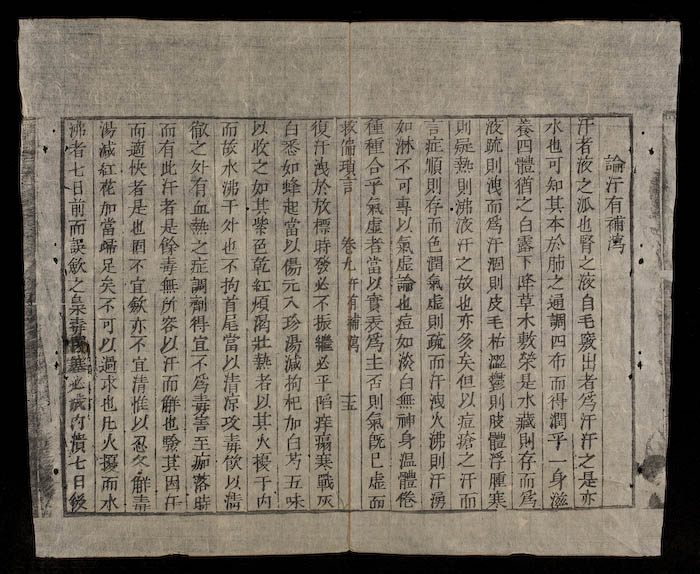 論汗有補萬
汗者液之瓜也腎之液自毛竅出者爲汗汗之是亦
水也可知其本於肺之通調四布而得潤乎一身滋
養四體猶之白露下降草木敷榮是水藏則存而爲
液疏則洩而爲汗涸則皮毛枯澀鬱則肢體浮腫寒
則疑熱則沸液汗之故也亦多矣但以痘瘡之汗而
言症順則存而色潤氣虛則疏而汗洩火沸則汗湧
如淋不可專以氣虛論也痘如淡白無神身温體倦
種種合乎氣虛者當以實表爲主否則氣既已虛而
救偏瑣言 卷九 汗有補萬 十五
復汗洩於放標時發必不振繼必平陷痒瘍寒戰灰
白悉如蜂起當以傷元入珍湯減枸杞加白芍五味
以收之如其紫色乾紅煩渴壯熱者以其火擾于内
而故水沸于外也不拘首尾當以清凉攻毒飲以清
徹之外有血熱之症調劑得宜不爲毒害至痂落時
而有此汗者是餘毒無所容以汗而解也驗其因汗
而適快者是也固不宜斂亦不宜清惟以忍冬解毒
湯減紅花加當歸足矣不可以過求也凡火擾而水
沸者七日前而誤飲之梟毒必成内潰七日後